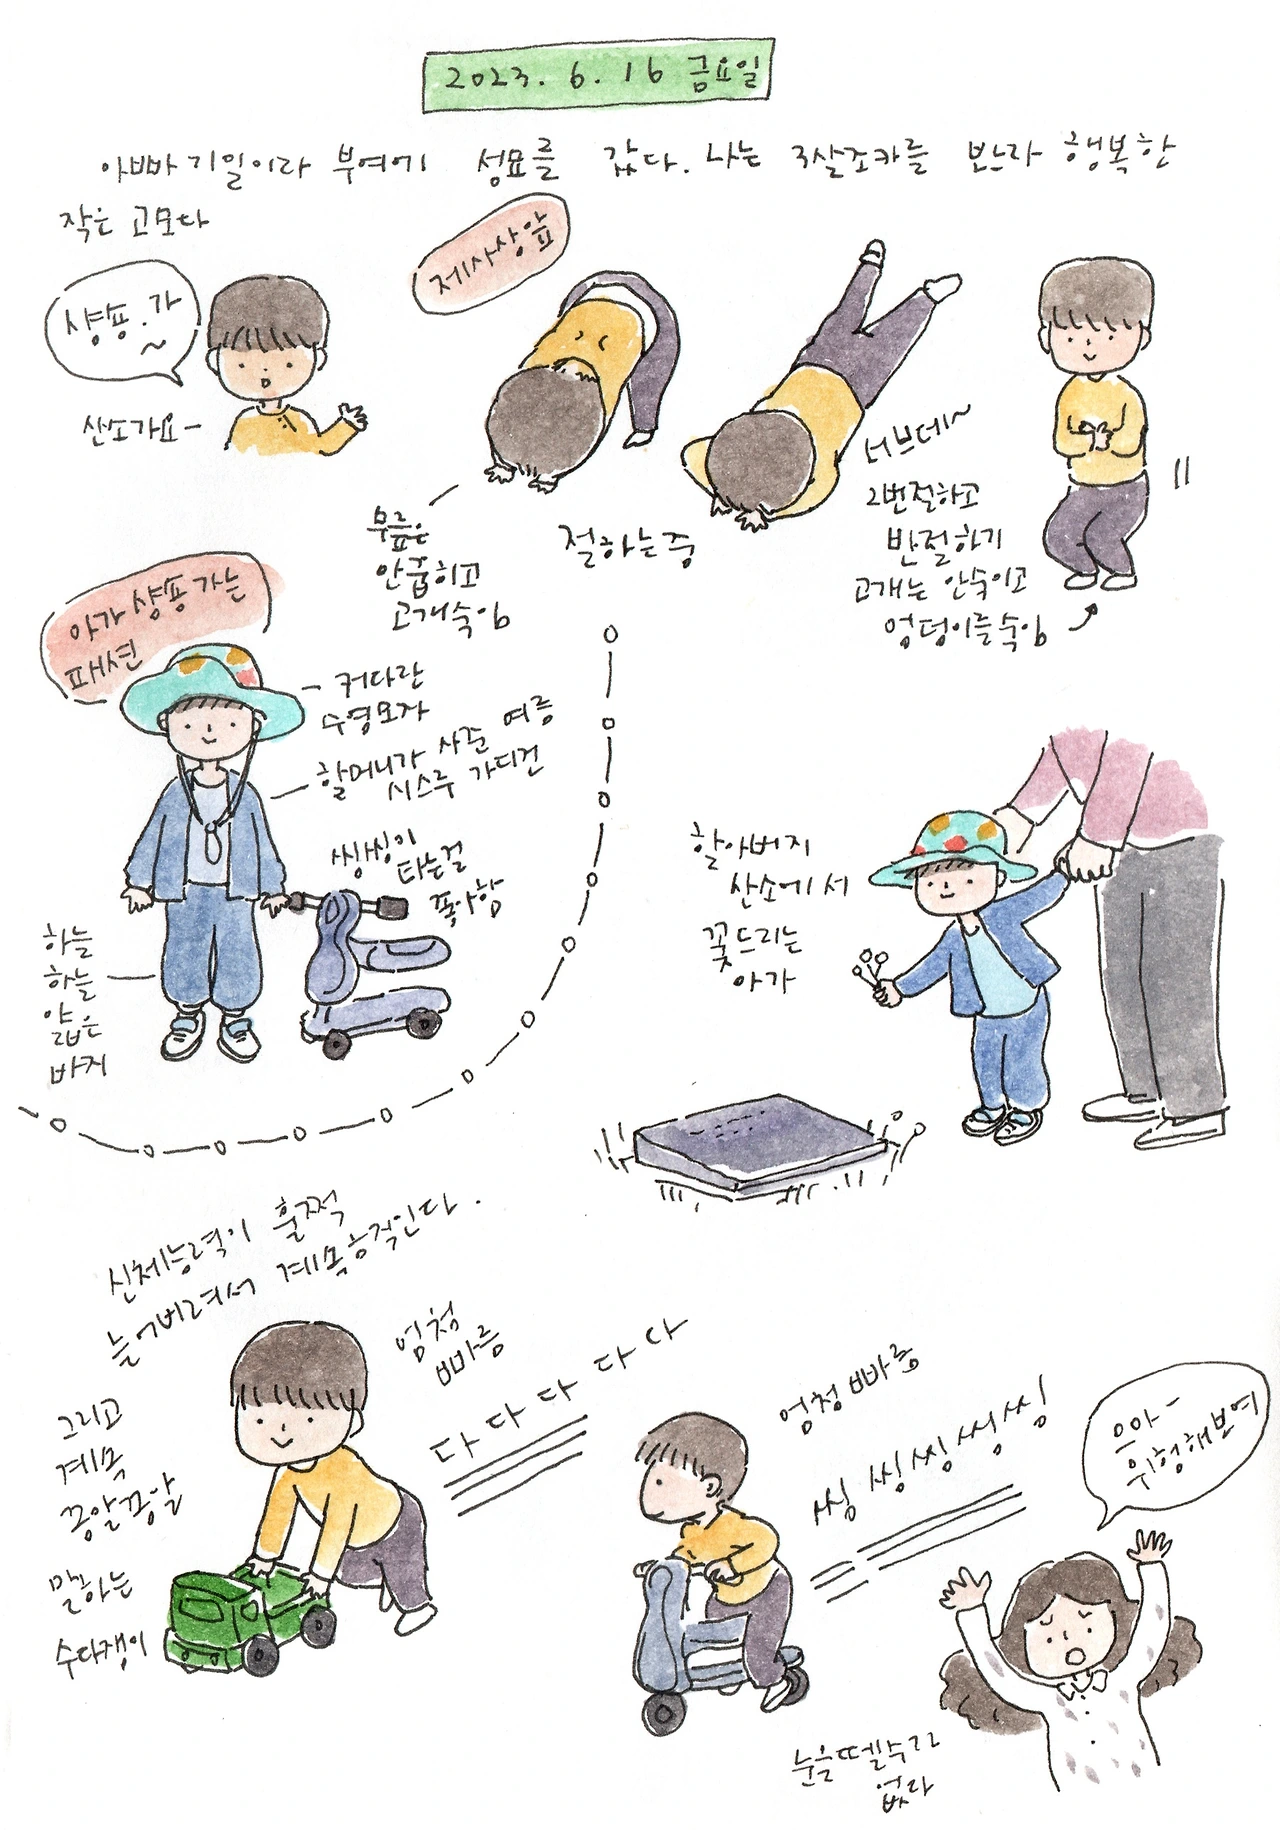 2023. 6. 16 금요일
아빠 기일이라 부여에 성묘를 갔다. 나는 3살조카를 만나 행복한
작은 고모다
제사상앞
샹숑.가~
산소가요-
써브데~
무릎은
안굽히고
고개숙임
절하는중
2번절하고
반절하기
고개는 안숙이고
엉덩이를숙임
아가 샹숑 가는
패션
커다란
수영모자
할머니가 사준 여름
시스루 가디건
씽씽이
타는걸
좋아함
하늘
하늘
얇은
바지
할아버지
산소에서
꽃드리는
아가
신체능력이 훌쩍
늘어버려서 계속움직인다.
엄청
빠름
다다다다다
그리고
계속
쫑알쫑알
말하는
수다쟁이
엄청빠름
씽씽씽씽씽
으아-
위험해보여
눈을뗄수가
없다